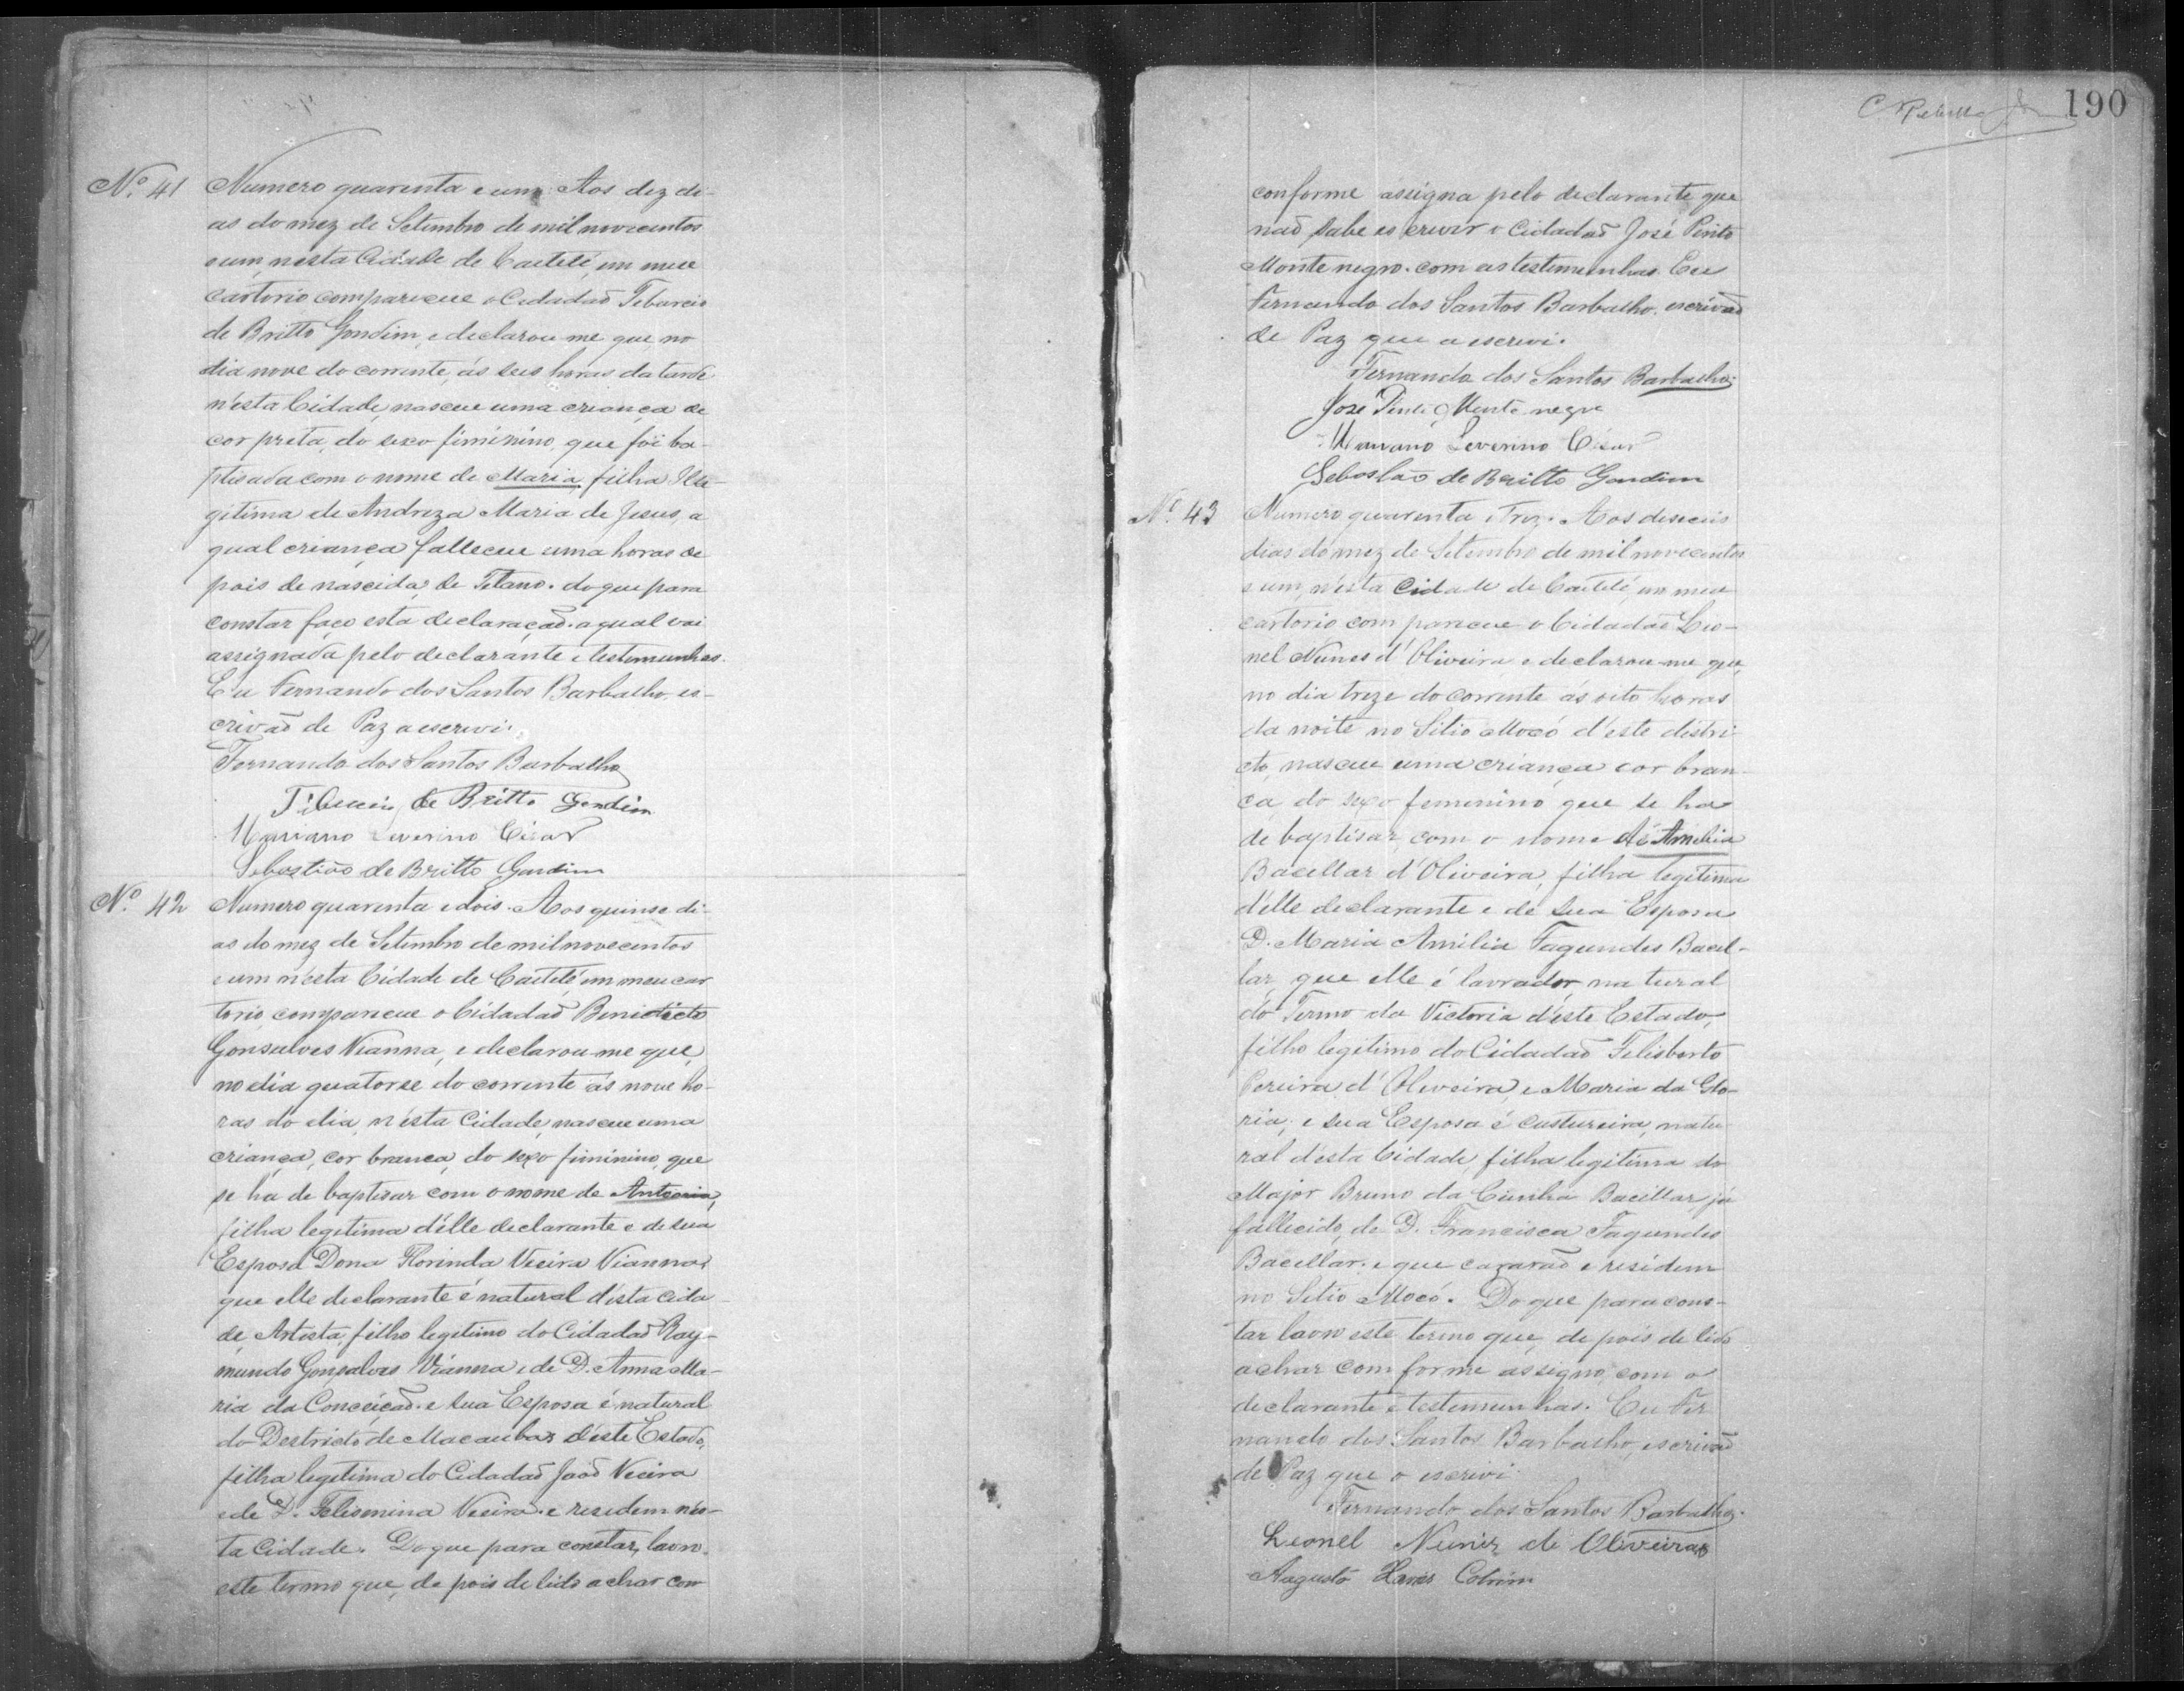 Nº 41 Numero quarenta e um. Aos dez di-
as do mez de Setembro de mil novecentos
e um, nesta Cidade de Caeteté, em meu
cartorio compareceu o Cidadaõ Tiburcio
de Britto Gondim, e declarou-me que no
dia nove do corrente, ás seis horas da tarde
n'esta Cidade, nasceu uma criança de
cor preta, do sexo fiminino, que foi ba-
ptisada com o nome de Maria, filha Ille-
gitima de Andreza Maria de Jesus, a
qual criança falleceu uma horas de
pois de nascida, de Tetano. do que para
constar faço esta declaraçaõ. a qual vai
assignada pelo declarante e testemunhas.
Eu Fernando dos Santos Barbalho, es-
crivaõ de Paz a escrevi.
Fernando dos Santos Barbalho
Tiburcio de Britto Gondim
Mariano Severino Cesar
Sebastião de Britto Gondim
Nº 42 Numero quarenta e dois. Aos quinse di-
as do mez de Setembro de mil novecentos
e um n'esta Cidade de Caeteté, em meu car
torio, compareceu o Cidadaõ Benedicto
Gonsalves Vianna, e declarou-me que,
no dia quatorse do corrente ás nove ho-
ras do dia, n'esta Cidade, nasceu uma
criança, cor branca, do sexo fiminino, que
se ha de baptisar com o nome de
filha legitima d'elle declarante e de sua
Esposa Dona Florinda Vieira Vianna,
que elle declarante é natural d'esta cida
de, Artista, filho legitimo do Cidadaõ Ray-
mundo Gonsalves Vianna e de D. Anna Ma-
ria da Conceiçaõ. e sua Esposa é natural
do Destricto de Macaubas d'este Estado,
filha legitima do Cidadaõ Joaõ Vieira
e de D. Felismina Vieira. e residem nes-
ta Cidade. Do que para constar, lavro
este termo que, de pois de lido e achar con
190
conforme assigna pelo declarante que
naõ sabe escrever o Cidadaõ José Pinto
Montenegro. com as testemunhas. Eu
Fernando dos Santos Barbalho, escrivaõ
de Paz que a escrevi.
Fernando dos Santos Barbalho.
José Pinto Monte negro
Mariano Severino Cesar
Sebastião de Britto Gondim
Nº 43 Numero quarenta e trez. Aos deseseis
dias do mez de Setembro de mil novecentos
e um, n'esta Cidade de Caeteté, em meu
cartorio compareceu o Cidadaõ Leo-
nel Nunes d'Oliveira e declarou-me que,
no dia treze do corrente ás oito horas
da noite no Sitio Mocó d'este distri
cto, nasceu uma criança cor bran-
ca, do sexo femenino que se ha
de baptisar com o nome de Amelia
Bacellar d'Oliveira, filha legitima
d'elle declarante e de sua Esposa
D. Maria Amilia Fagundes Bacel-
lar, que elle é lavrador, natural
do Termo da Victoria d'este Estado,
filho legitimo do Cidadaõ Felisberto
Pereira d'Oliveira, e Maria da Glo-
ria; e sua Esposa é custureira, natu
ral d'esta Cidade, filha legitima do
Major Bruno da Cunha Bacellar, já
fallecido, de D. Francisca Fagundes
Bacellar. e que cazaraõ e residem
no Sitio Mocó. Do que para cons-
tar lavro este termo que, de pois de lido
achar comforme assigno, com o
declarante e testemunhas. Eu Fer
nando dos Santos Barbalho, escrivaõ
de Paz que o escrevi.
Fernando dos Santos Barbalho.
Leonel Nunes de Oliveira
Augusto